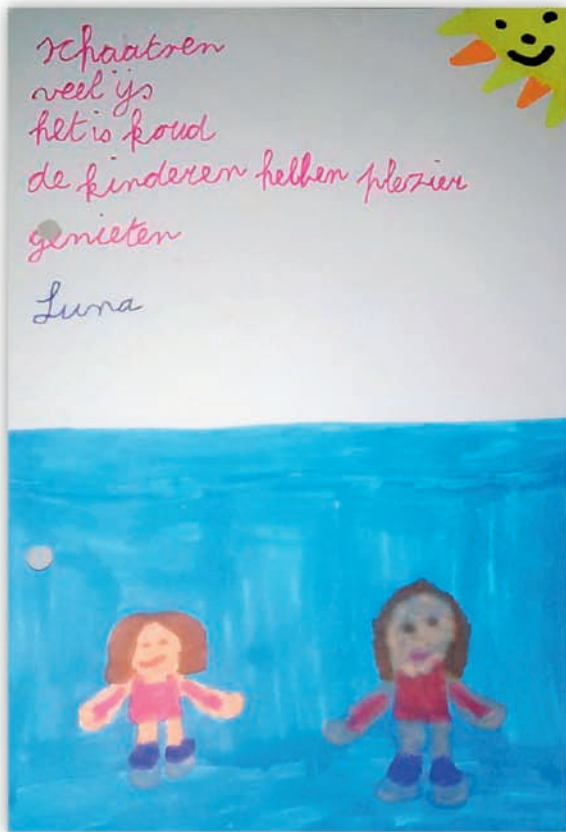 schaatsen
veel ijs
het is koud
de kinderen hebben plezier
genieten
Luna